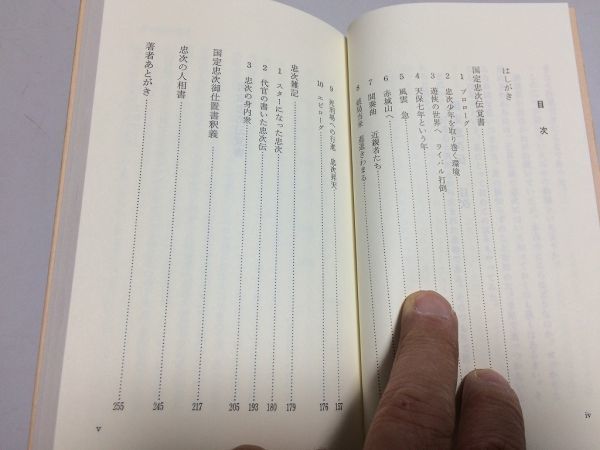 目次
はしがき
国定忠次伝覚書
1 プロローグ
2 忠次少年を取り巻く環境
3 遊侠の世界へ ライバル打倒
4 天保七年という年
5 風雲急
6 赤城山へ
7 間奏曲 近親者たち
8 進退きわまる
iv
9 処刑場への行進 忠次昇天 157
10 エピローグ 176
忠次雑記 179
1 スターになった忠次 180
2 代官の書いた忠次伝 193
3 忠次の身内衆 205
国定忠次御仕置書釈義 217
忠次の人相書 245
著者あとがき 255
v